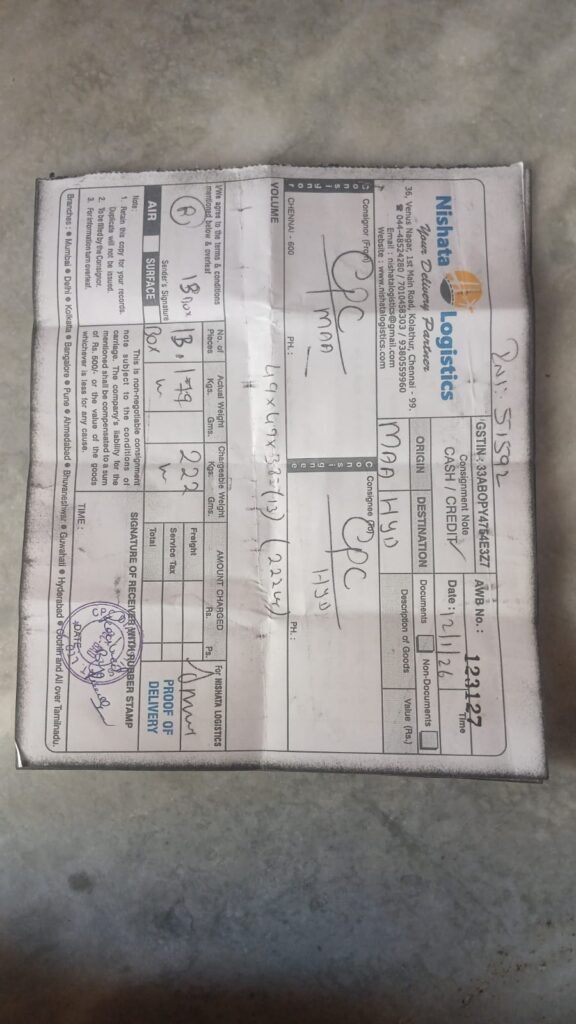 Nishata Logistics
Your Delivery Partner
36, Venus Nagar, 1st Main Road, Kolathur, Chennai - 99.
☎ 044-48524280 / 7010458303 / 9380559960
Email : nishatalogistics@gmail.com
Website : www.nishatalogistics.com
51592
GSTIN: 33ABOPY4754E3Z7
Consignment Note
CASH / CREDIT
AWB No. : 123127
Date : 12/1/26
Time
ORIGIN
DESTINATION
MAA HYD
Documents
Non-Documents
Description of Goods
Value (Rs.)
Consignor
Consignor (From)
CPC
MAA
CHENNAI - 600
PH. :
Consignee
Consignee (To)
CPC
HYD
PH. :
VOLUME
49x49x33=(13) (222W)
I/We agree to the terms & conditions
mentioned below & overleaf
Sender's Signature
AIR
SURFACE
No. of
Pieces
13
Box
Actual Weight
Kgs. Gms.
179
W
Chargeable Weight
Kgs. Gms.
222
W
AMOUNT CHARGED
Rs. Ps.
Freight
Service Tax
Total
For NISHATA LOGISTICS
PROOF OF
DELIVERY
Note:
1. Retain this copy for your records.
Duplicate will not be issued.
2. To be filled by the Consignor.
3. For information turn overleaf.
This is non-negotiable consignment
note subject to the conditions of
carriage. The company's liability for the
mentioned shall be compensated to a sum
of Rs. 500/- or the value of the goods
whichever is less for any cause.
SIGNATURE OF RECEIVER WITH RUBBER STAMP
TIME :
DATE
Branches : ● Mumbai ● Delhi ● Kolkatta ● Bangalore ● Pune ● Ahmedabad ● Bhuvaneshwar ● Guwahati ● Hyderabad ● Cochin and All over Tamilnadu.